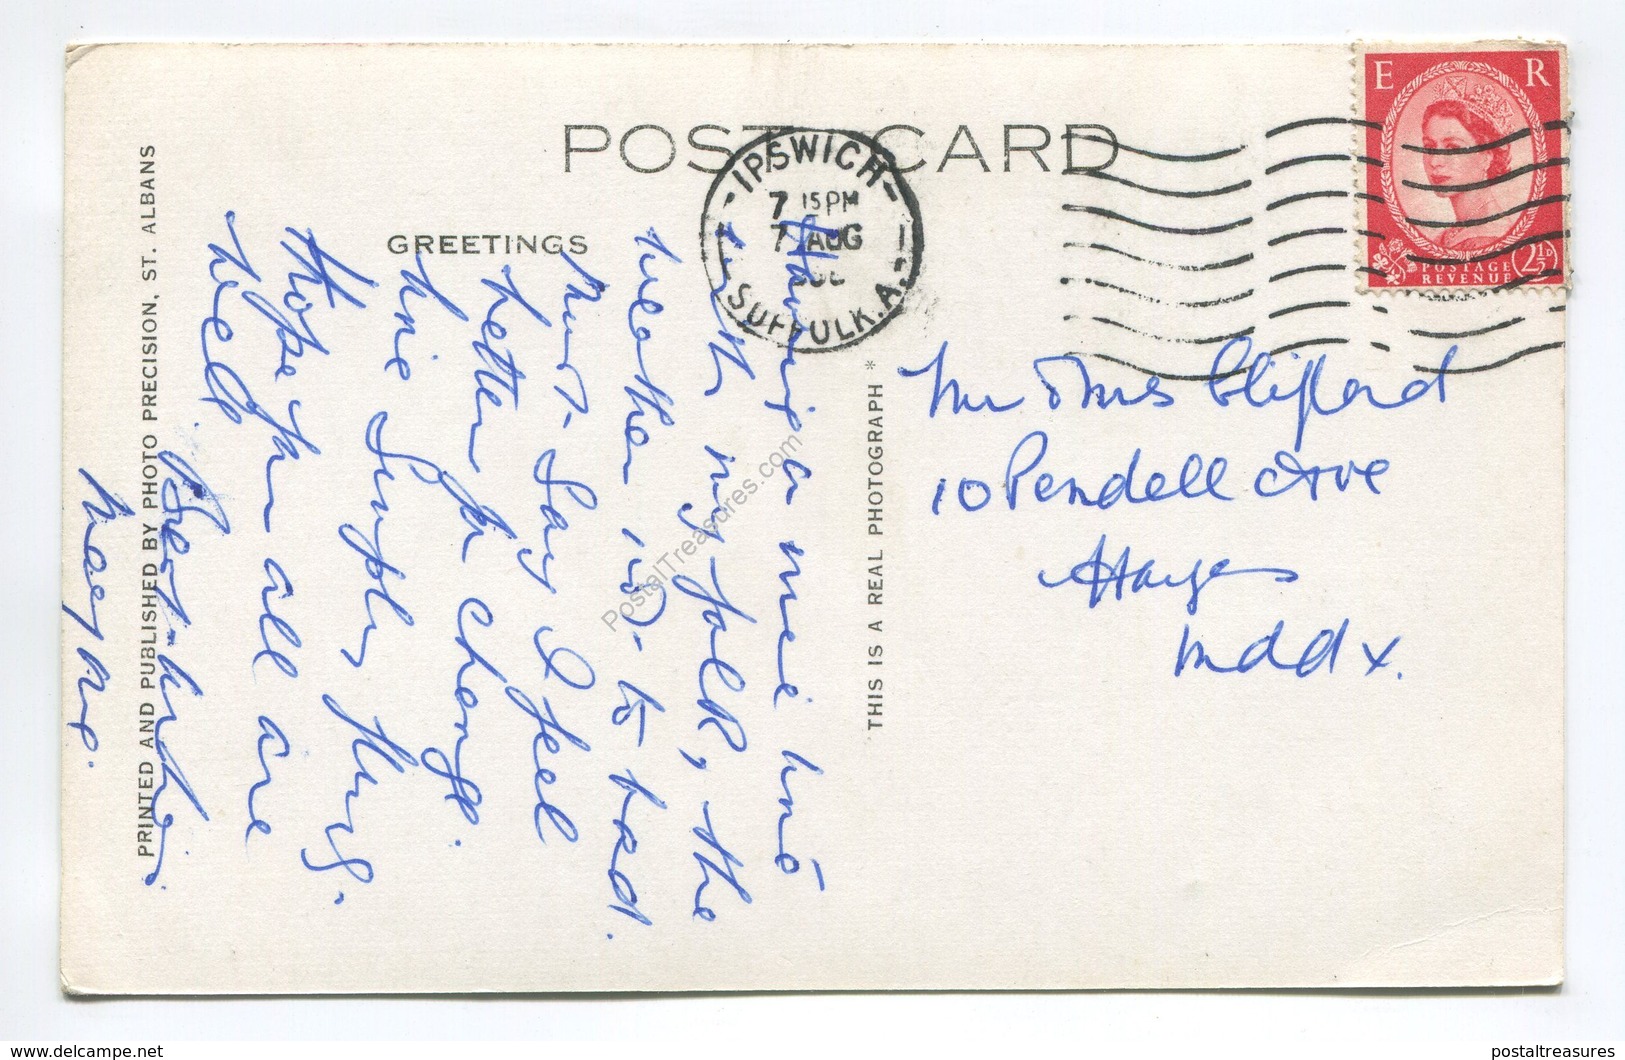 POST CARD
GREETINGS
IPSWICH
7 15PM
7 AUG
SUFFOLK.A.
E R
POSTAGE
REVENUE
2½D
Having a nice time
with my folk, the
weather is to bad.
Must say I feel
better for change.
time simply flies.
Hope you all are
well
Best wishes.
Mr & Mrs Clifford
10 Pendell Ave
Hayes
Mddx.
PRINTED AND PUBLISHED BY PHOTO PRECISION, ST. ALBANS
THIS IS A REAL PHOTOGRAPH *
PostalTreasures.com
www.delcampe.net
postaltreasures